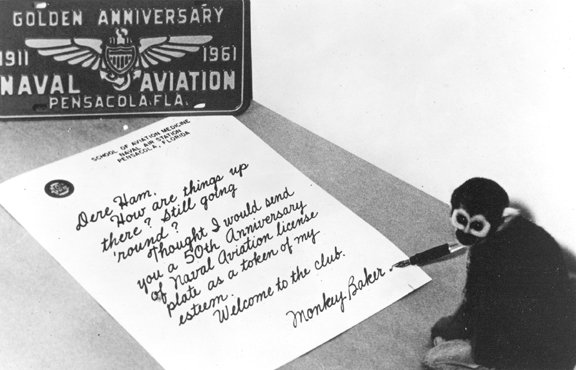 GOLDEN ANNIVERSARY
1911 1961
NAVAL AVIATION
PENSACOLA, FLA.
SCHOOL OF AVIATION MEDICINE
NAVAL AIR STATION
PENSACOLA, FLORIDA
Dere Ham,
How are things up
there? Still going
'round?
Thought I would send
you a 50th Anniversary
of Naval Aviation license
plate as a token of my
esteem.
Welcome to the club.
Monkey Baker